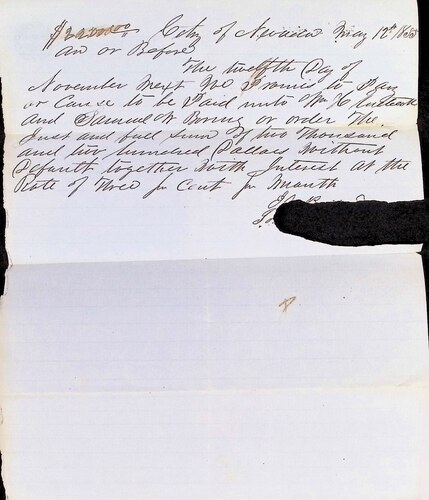 $2200.00 City of Nevada May 12th
on or Before
The twelfth Day of
November Next We Promis to Pay
or Cause to be Paid unto Wm H
and Samuel W Boring or order the
Just and full Sum of two thousand
and two hundred Dollars Without
Defaulth together With Interest at the
Rate of three pr Cent pr Month